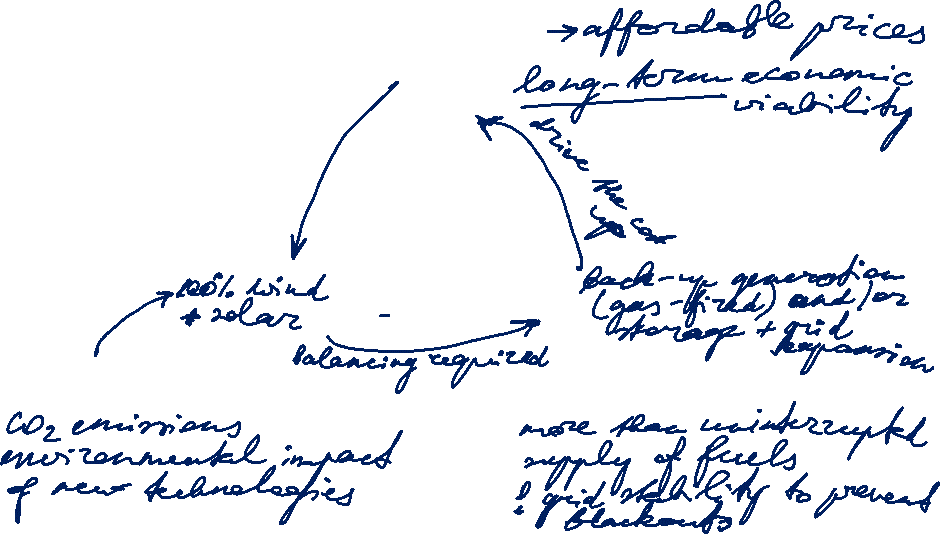 → affordable prices
long-term economic
viability
drive the cost
up
100% wind
+ solar
back-up generation
(gas-fired) and/or
storage + grid
expansion
Balancing required
CO2 emissions
environmental impact
of new technologies
more than uninterrupted
supply of fuels
! grid stability to prevent
blackouts